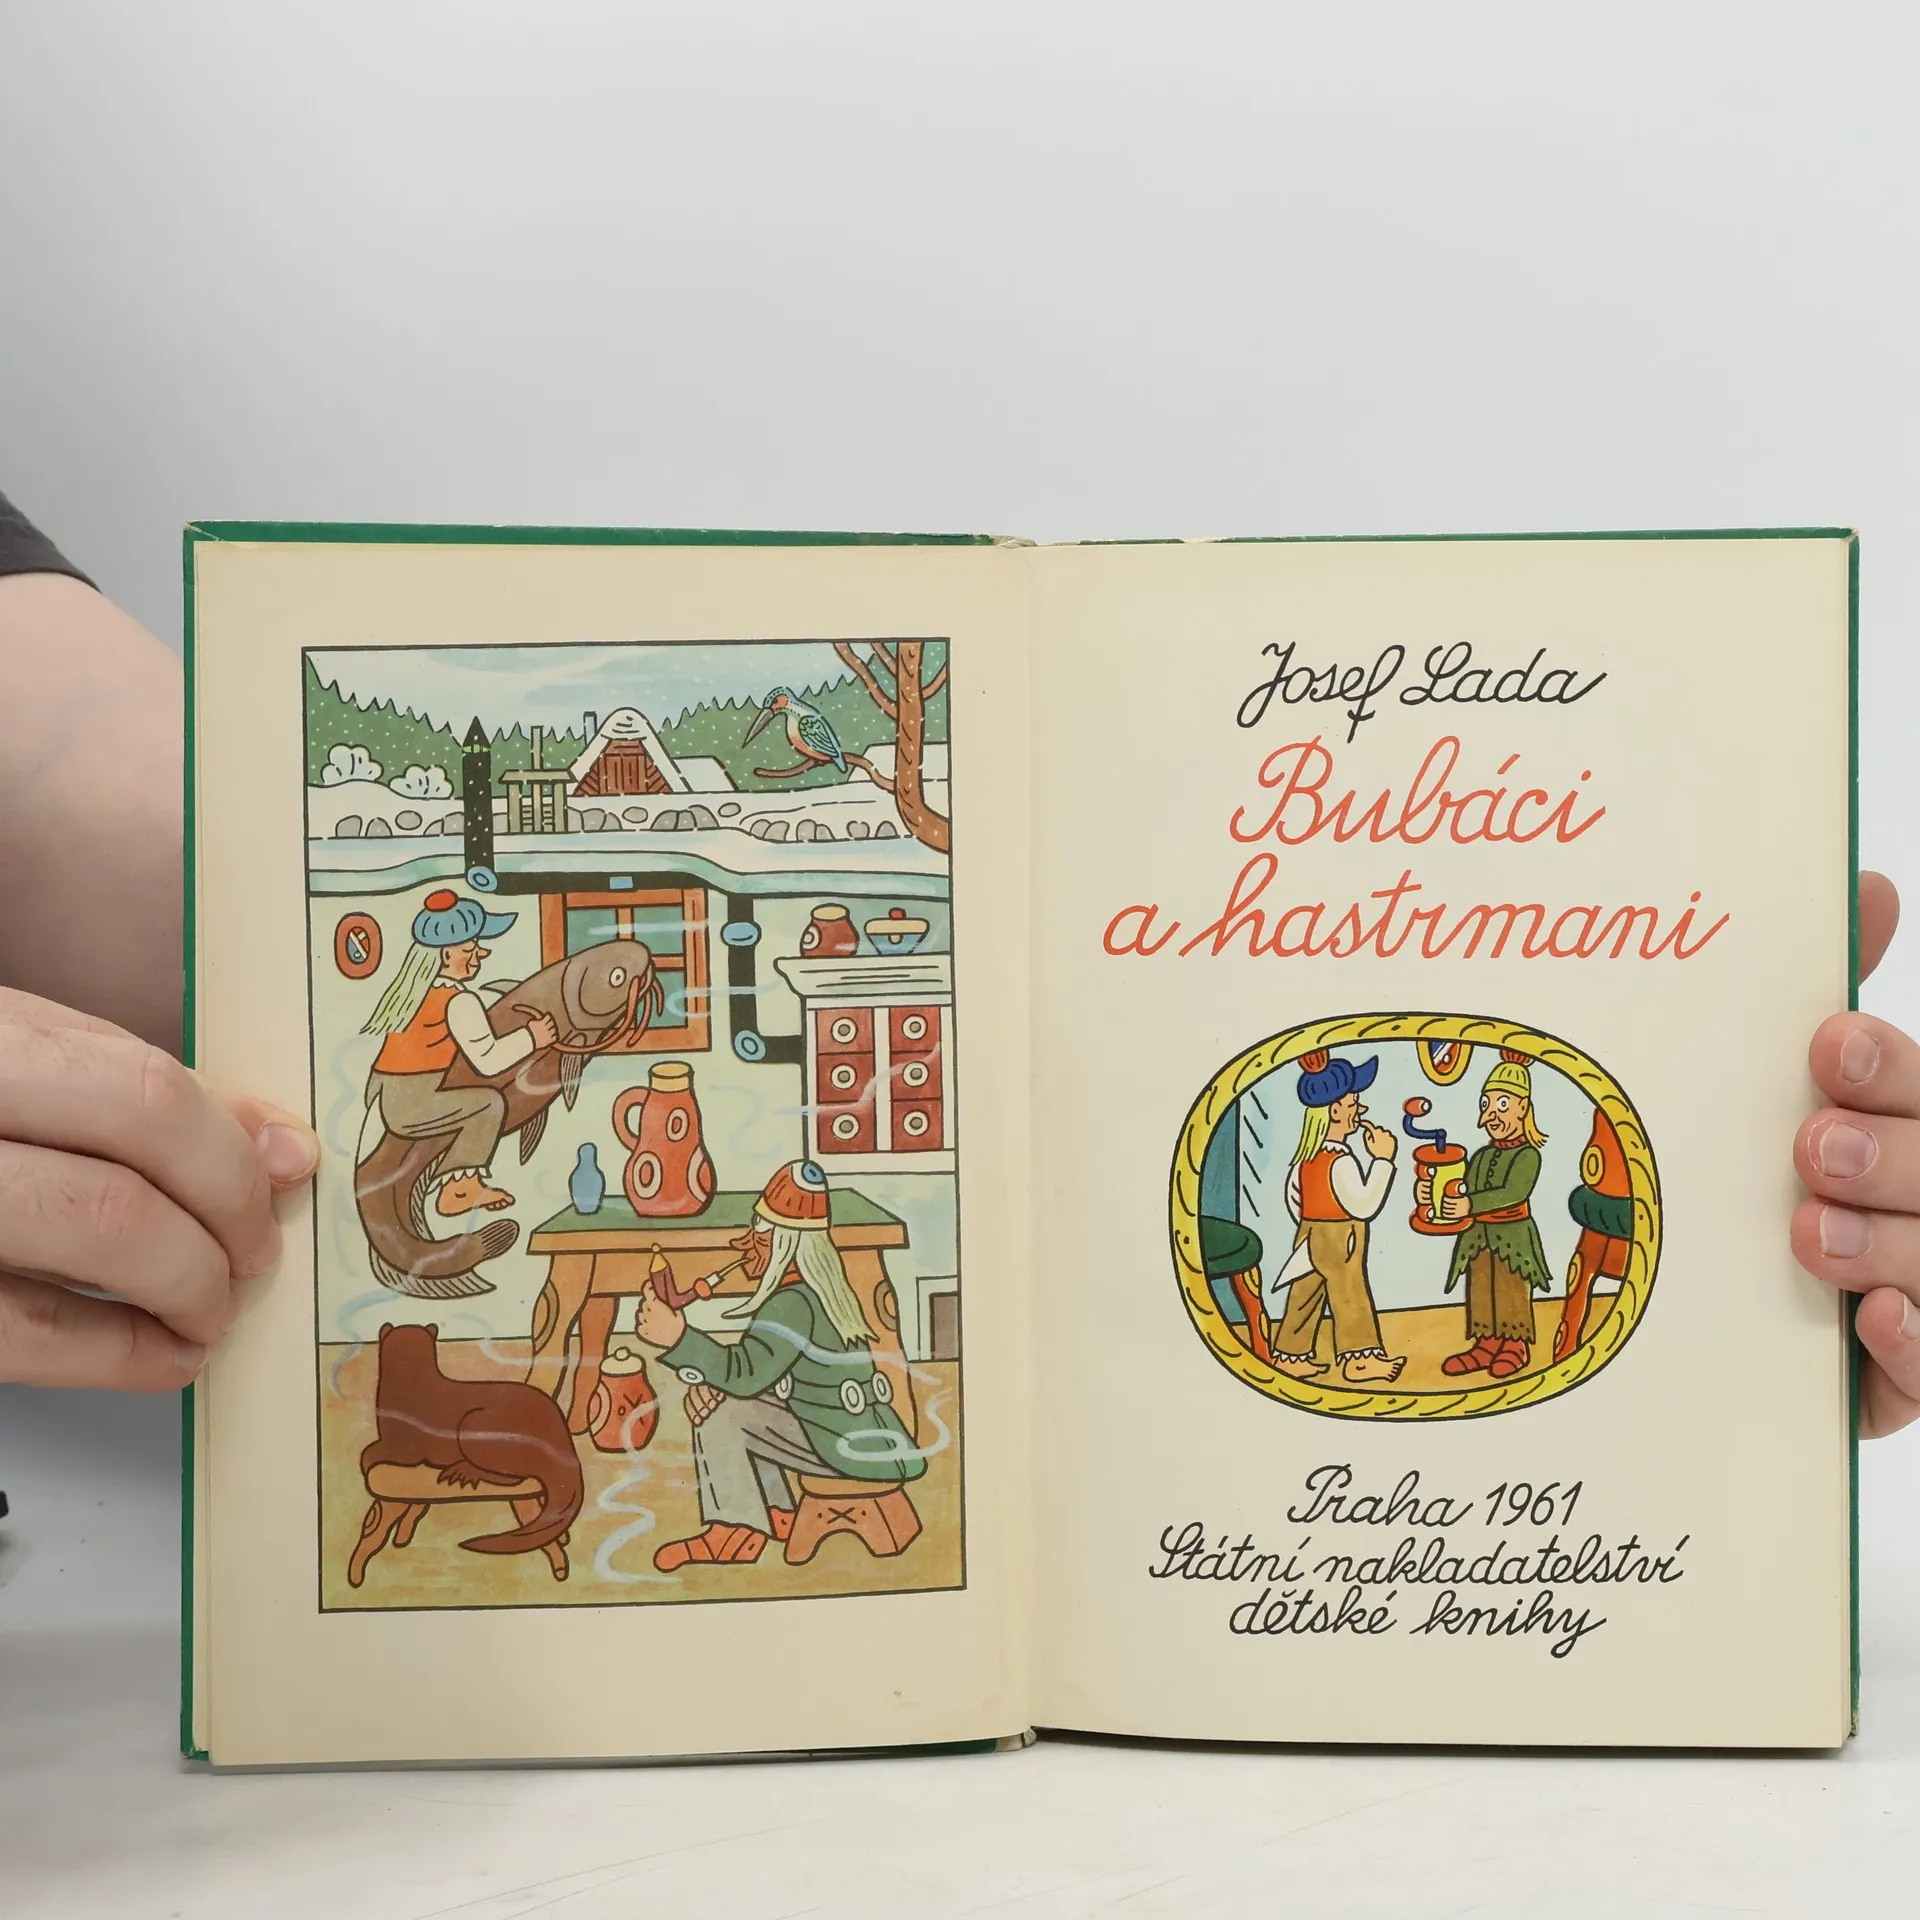 Josef Lada
Bubáci
a hastrmani
Praha 1961
Státní nakladatelství
dětské knihy